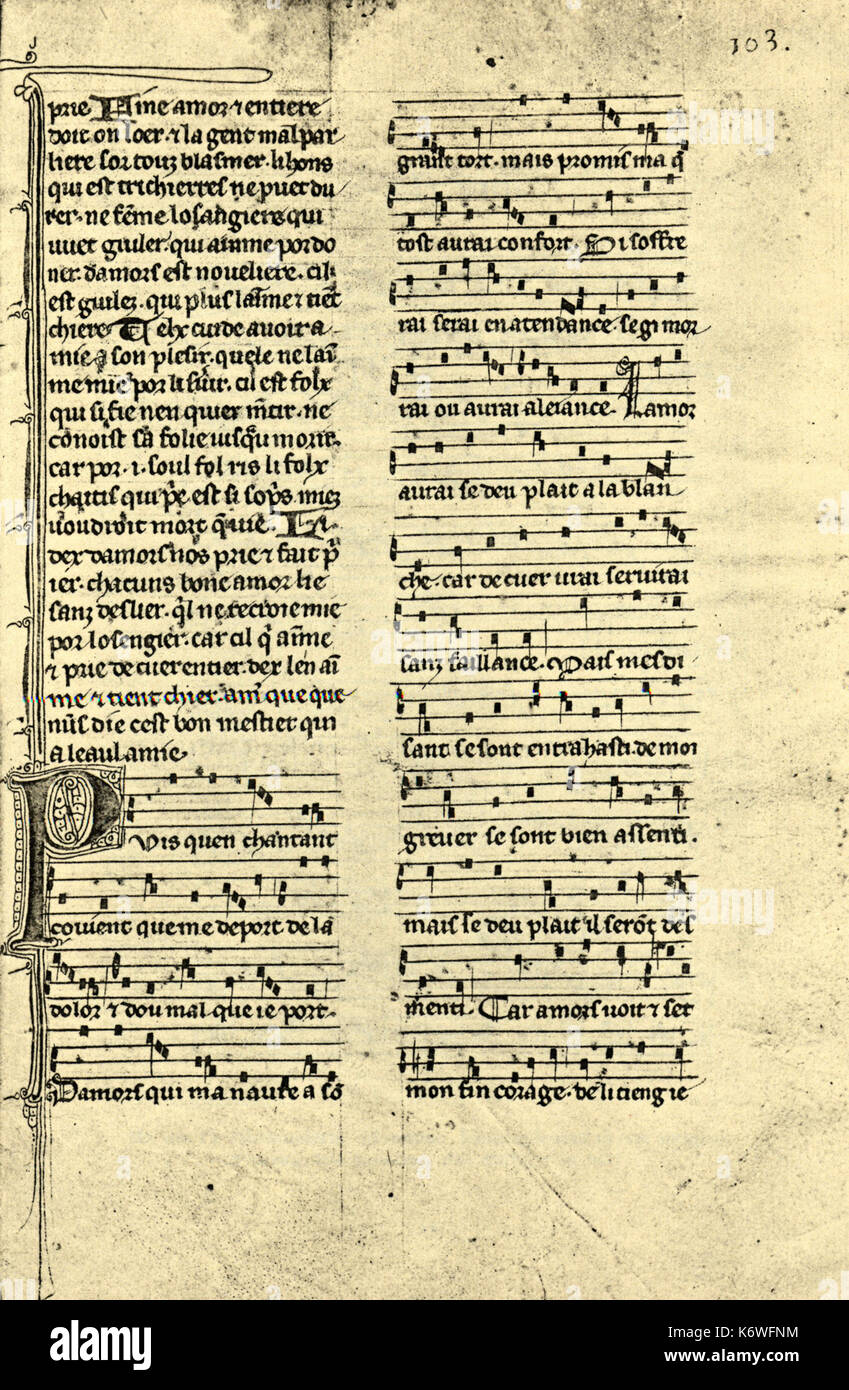 103.
prie. Fine amor ⁊ entiere
doit on loer. ⁊ la gent mal par
liere sor touz blasmer. li hons
qui est trichierres ne puet du
rer. ne fēme losangiere qui
uuet guiler. qui aimme por do
ner. damors est noueliere. cil
est guilez. qui plus laīme ⁊ tiēt
chiere. Telx cuide auoir a
mie a son plesir. quele ne laī
me mie por li seruir. cil est folx
qui si fie nen quier mētir. ne
cōnoist sa folie iusqu morir.
car por .i. soul fol ris li folx
chaitis qui est si sopris miez
uoudroit mort q̄ uie. Li
dex damors nos prie ⁊ fait
ier. chacuns bone amor lie
sanz deslier. q̄l ne recroie mie
por losengier. car cil q̄ aīme
⁊ prie de cuer entier. dex len aī
me ⁊ tient chier. ami que que
nūs die cest bon mestier qui
a leaul amie.
Puis quen chantant
couient que me deport de la
dolor ⁊ dou mal que ie port.
Damors qui ma naure a
grant tort. mais promis ma q̄
tost aurai confort. Si soffre
rai serai en atendance. se gi mor
rai ou aurai aleiance. Lamor
aurai se deu plait a la blan
che. car de cuer urai seruirai
sanz faillance. Mais mesdi
sant se sont entrahasti. de moi
greuer se sont bien assenti.
mais se deu plait il serōt des
menti. Car amors uoit ⁊ set
mon fin corage. de li tieng ie
alamy
alamy
Image ID: K6WFNM
www.alamy.com